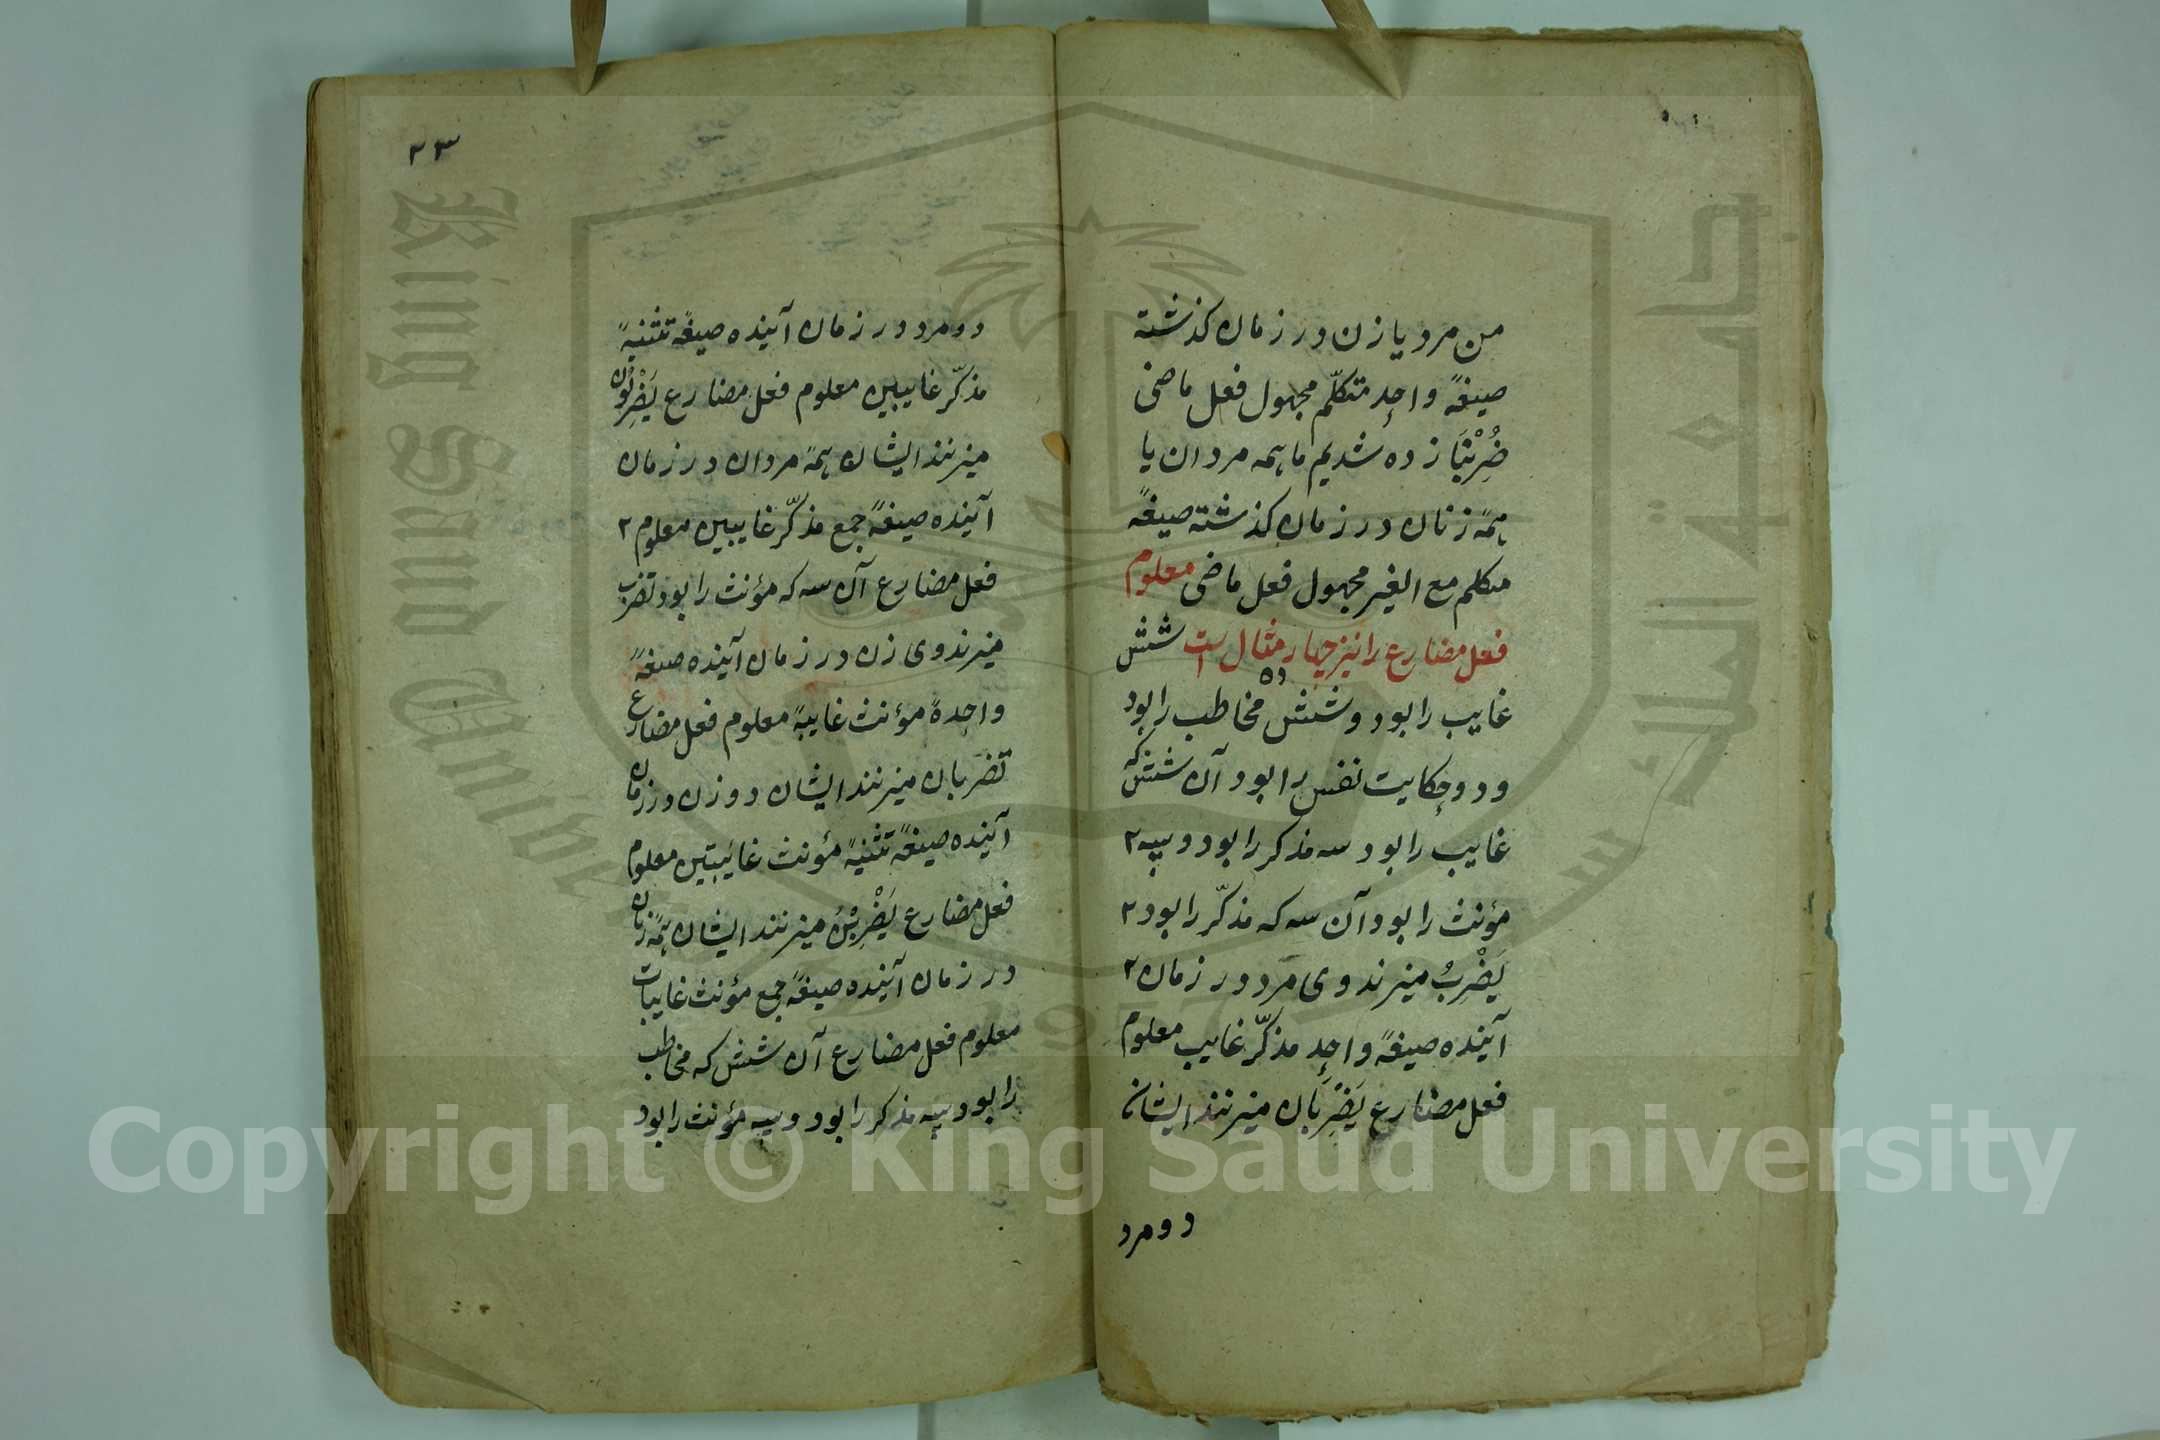 من مرد یا زن در زمان کذشته
صیغهٔ واحد متکلّم مجهول فعل ماضی
ضُرِبْنَا زده شدیم ما همه مردان یا
همهٔ زنان در زمان کذشته صیغهٔ
متکلم مع الغیر مجهول فعل ماضی معلوم
فعل مضارع را نیز چهارده مثال است شش
غایب را بود و شش مخاطب را بود
و دو حکایت نفس را بود آن شش که
غایب را بود سه مذکر را بود و سه ۲
مؤنث را بود آن سه که مذکّر را بود ۲
یَضْرِبُ میزند وی مرد در زمان ۲
آینده صیغهٔ واحد مذکّر غایب معلوم
فعل مضارع یَضْرِبَان میزنند ایشان
دو مرد
۲۳
دو مرد در زمان آینده صیغهٔ تثنیهٔ
مذکّر غایبین معلوم فعل مضارع یَضْرِبُون
میزنند ایشان همهٔ مردان در زمان
آینده صیغهٔ جمع مذکّر غایبین معلوم ۲
فعل مضارع آن سه که مؤنث را بود تضرب
میزند وی زن در زمان آینده صیغهٔ
واحدهٔ مؤنث غایبهٔ معلوم فعل مضارع
تضربان میزنند ایشان دو زن در زمان
آینده صیغهٔ تثنیهٔ مؤنث غائبتین معلوم
فعل مضارع یَضْرِبْنَ میزنند ایشان همهٔ زنان
در زمان آینده صیغهٔ جمع مؤنث غایبات
معلوم فعل مضارع آن شش که مخاطب
را بود سه مذکر را بود و سه مؤنث را بود
King Saud University
جامعة الملك سعود
1957
Copyright © King Saud University